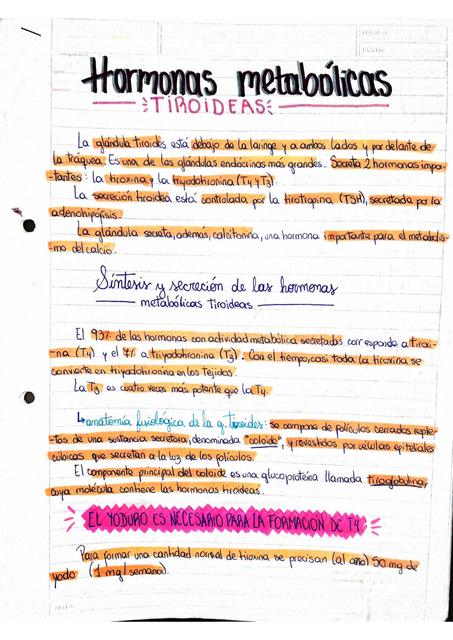 Hormonas metabólicas
TIROIDEAS
La glándula tiroides está debajo de la laringe y a ambos lados y por delante de
la tráquea. Es una de las glándulas endócrinas más grandes. Secreta 2 hormonas impor-
-tantes: la tiroxina y la triyodotironina (T4 y T3).
La secreción tiroidea está controlada por la tirotropina (TSH), secretada por la
adenohipófisis.
La glándula secreta, además, calcitonina, una hormona importante para el metabolis-
mo del calcio.
Síntesis y secreción de las hormonas
metabólicas tiroideas
El 93% de las hormonas con actividad metabólica secretadas corresponde a tirox-
-na (T4) y el 7% a triyodotironina (T3). Con el tiempo, casi toda la tiroxina se
convierte en triyodotironina en los Tejidos.
La T3 es cuatro veces más potente que la T4.
↳ anatomía fisiológica de la g. tiroides: se compone de folículos cerrados reple-
-tos de una sustancia secretora, denominada "coloide", y revestidos por células epiteliales
cúbicas que secretan a la luz de los folículos.
El componente principal del coloide es una glucoproteína llamada tiroglobulina,
cuya molécula contiene las hormonas tiroideas.
EL YODURO ES NECESARIO PARA LA FORMACIÓN DE T4
Para formar una cantidad normal de tiroxina se precisan (al año) 50 mg de
yodo (1 mg/semana).